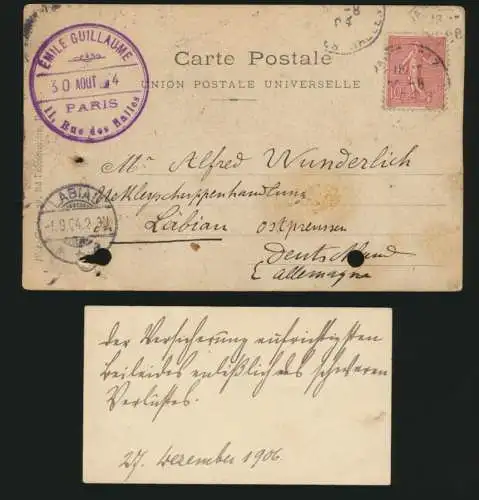 EMILE GUILLAUME
30 AOUT 04
PARIS
11, Rue des Halles
Carte Postale
UNION POSTALE UNIVERSELLE
Mr Alfred Wunderlich
Labian ostpreussen
Deutschland
Allemagne
LABIAU
1.9.04.2-3N.
der Versicherung aufrichtigsten
Beileides anläßlich des schweren
Verlustes.
27. Dezember 1906.